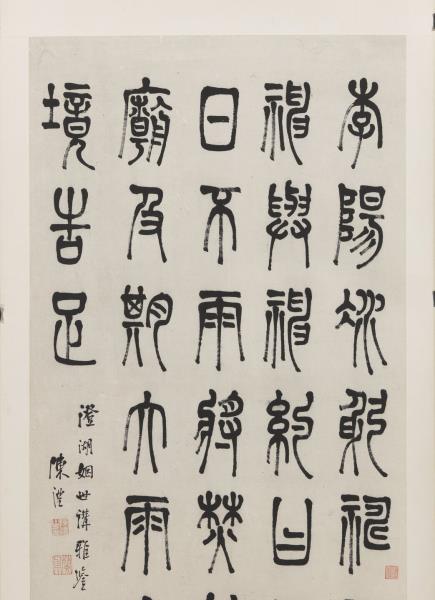 李陽冰躬祈
神與神約曰
日不雨將焚
廟及期大雨
境告足
澄湖姻世講雅鑒
陳澧